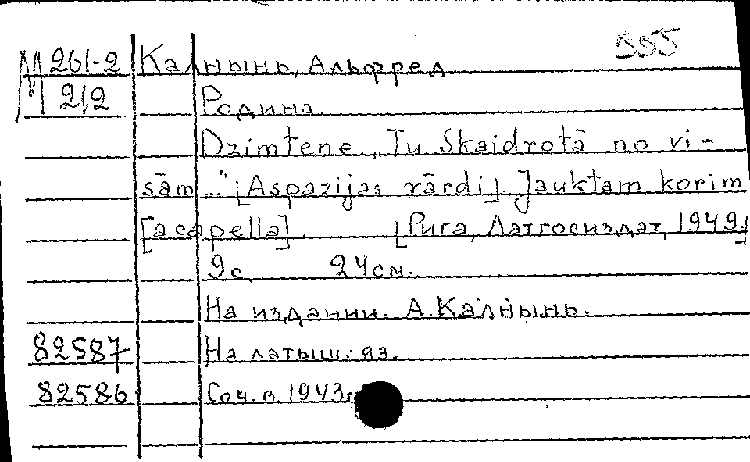 555
М 261-2 Калнынь, Альфред
М 212 Родина.
Dzimtene „Tu Skaidrotā no vi-
sām ..." [Aspazijas vārdi]. Jauktam korim
[a capella]. [Рига, Латгосиздат, 1949.]
9с. 24см.
На издании: А. Калнынь.
82587 На латыш. яз.
82586 Соч. в 1943г.